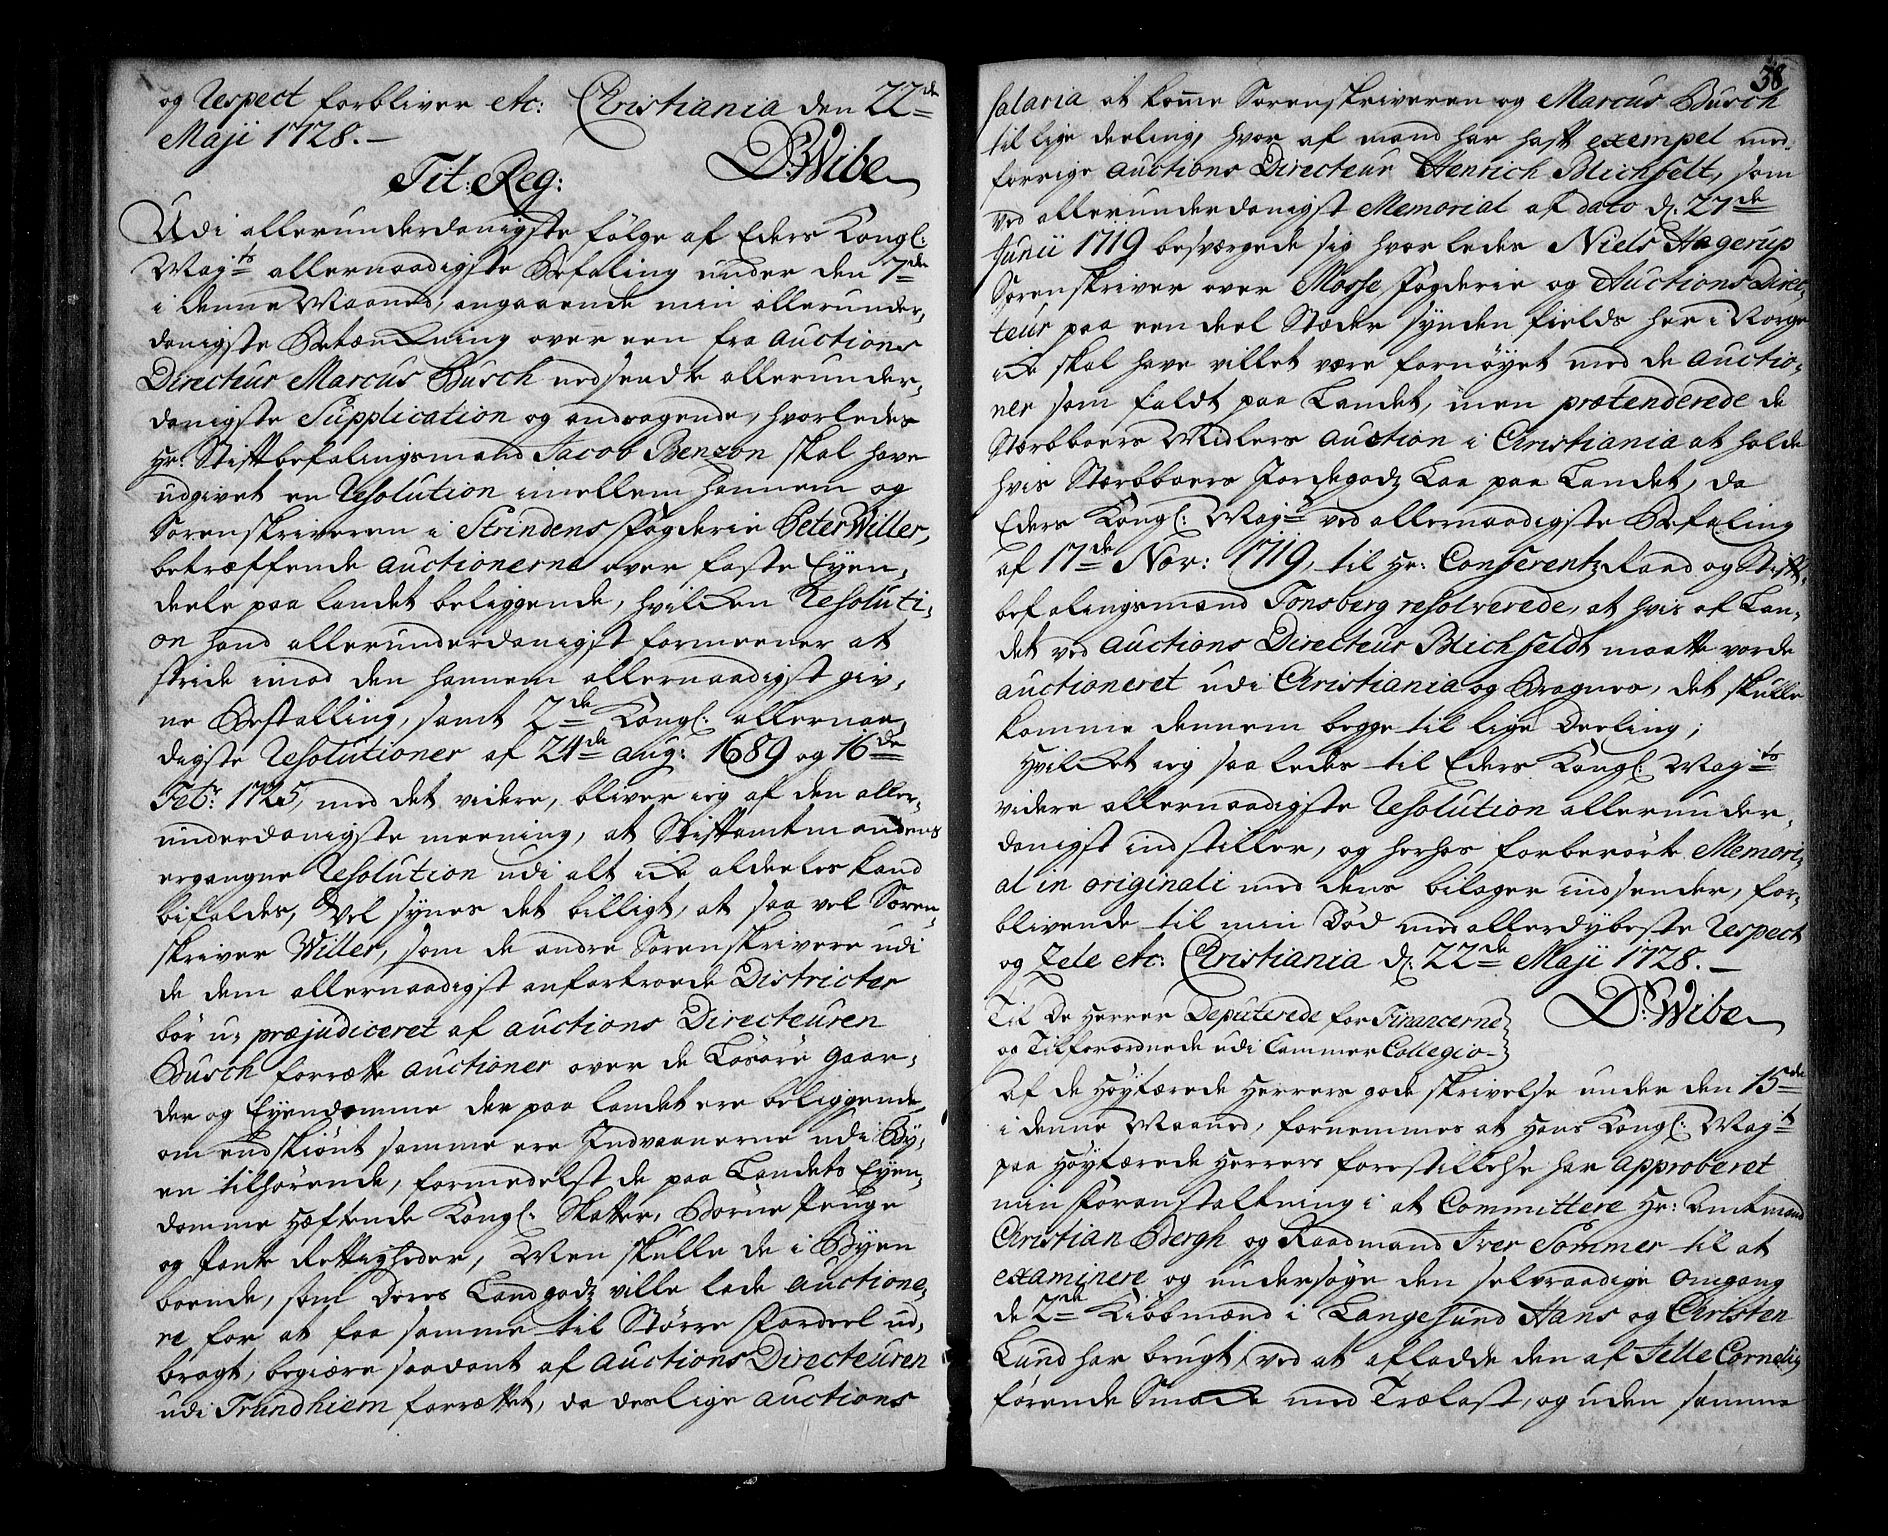 og Respect forbliver etc: Christiania den 22de
Maji 1728.-
D: Wibe
Tit: Reg:
Udi allerunderdanigste følge af Eders Kongl:
Mayts allernaadigste Befaling under den 7de
i denne Maaned, angaaende min allerunder,
danigste Betænkning over een fra Auctions
Directeur Marcus Busch nedsendte allerunder,
danigste Supplication og andragende, hvorledes
Hr: Stiftbefalingsmand Jacob Benzon skal have
udgivet en Resolution imellem hannem og
Sorenskriveren i Strindens Fogderie Peter Willer,
betræffende auctionerne over faste Eyen,
deele paa landet beliggende, hvilken Resoluti,
on hand allerunderdanigst formeener at
stride imod den hannem allernaadigst giv,
ne Bestalling, samt 2de Kongl: allernaa,
digste Resolutioner af 24de aug: 1689 og 16de
Febr: 1725, med det videre, bliver ieg af den aller,
underdanigste meening, at Stiftamtmandens
ergangne Resolution udi alt icke aldeeles kand
bifaldes, Vel synes det billigt, at saa vel Soren,
skriver Willer, som de andre Sorenskrivere udi
de dem allernaadigst anfortroede Districter
bør u-præjudiceret af auctions Directeuren
Busch forrette auctioner over de Løsøre Gaar,
der og Eyendomme der paa landet ere beliggende,
om endskiønt samme ere Indvaanerne udi By,
en tilhørende, formedelst de paa Landets Eyen,
domme hæftende Kongl: Skatter, Børne Penge
og Pante Rettigheder, Men skulle de i Byen
boende, som deres Landgodz ville lade auctione,
re for at faa samme til Større Fordeel ud,
bragt, begiære saadant af Auctions Directeuren
udi Trundhiem forrættet, da deslige auctions
58
salaria at komme Sorenskriveren og Marcus Busch
til lige deeling, hvor af mand har haft exempel med
forrige auctions Directeur Henrich Bichfelt, som
ved allerunderdanigst Memorial af dato d: 27de
Junii 1719 besværgede sig hvorledes Niels Hagerup
Sorenskriver over Mosse Fogderie og Auctions Direc,
teur paa een deel Stæder synden fields her i Norge
icke skal have villet være fornøyet med de auctio,
ner som faldt paa Landet, men prætenderede de
Stærboers Midlers auction i Christiania at holde
hvis Stærboers Jordegodz Laa paa Landet, da
Eders Kongl: Mayt ved allernaadigste Befaling
af 17de Nov: 1719, til Hr: Conferentz Raad og Stift,
befalingsmand Tonsberg resolverede, at hvis af Lan,
det ved auctions Directeur Bichfeldt maatte vorde
auctioneret udi Christiania og Bragnes, det skulle
komme dennem begge til lige Deeling;
Hvilket ieg saaledes til Eders Kongl: Mayts
videre allernaadigste Resolution allerunder,
danigst indstiller, og herhos forberørte Memori,
al in originali med dens bilager indsender, for,
blivende til min Død med allerdybeste Respect
og Zele etc: Christiania d: 22de Maji 1728.-
D: Wibe
Til De Herrer Deputerede for Financerne
og Tilforordnede udi Cammer Collegio-
Af de Høyærede Herrers gode skrivelse under den 15de
i denne Maaned, fornemmes at Hans Kongl: Mayt
paa Høyærede Herrers forestillelse har approberet
min Foranstaltning i at Committere Hr: Amtmand
Christian Bergh og Raadmand Iver Sommer til at
examinere og undersøge den selvraadige Omgang
de 2de Kiøbmænd i Langesund Hans og Christen
Lund har brugt, ved at afladde den af Jelle Cornelis
førende Smacke med Trælast, og uden samme